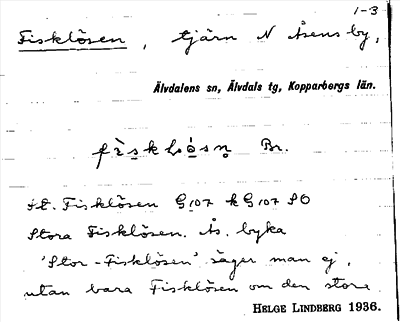 1-3
Fisklösen, tjärn N Åsens by,
Älvdalens sn, Älvdals tg, Kopparbergs län.
Br.
st. Fisklösen G107 k G107 SO
Stora Fisklösen. Ås. byka
'Stor-Fisklösen' säger man ej,
utan bara Fisklösen om den stora
HELGE LINDBERG 1936.